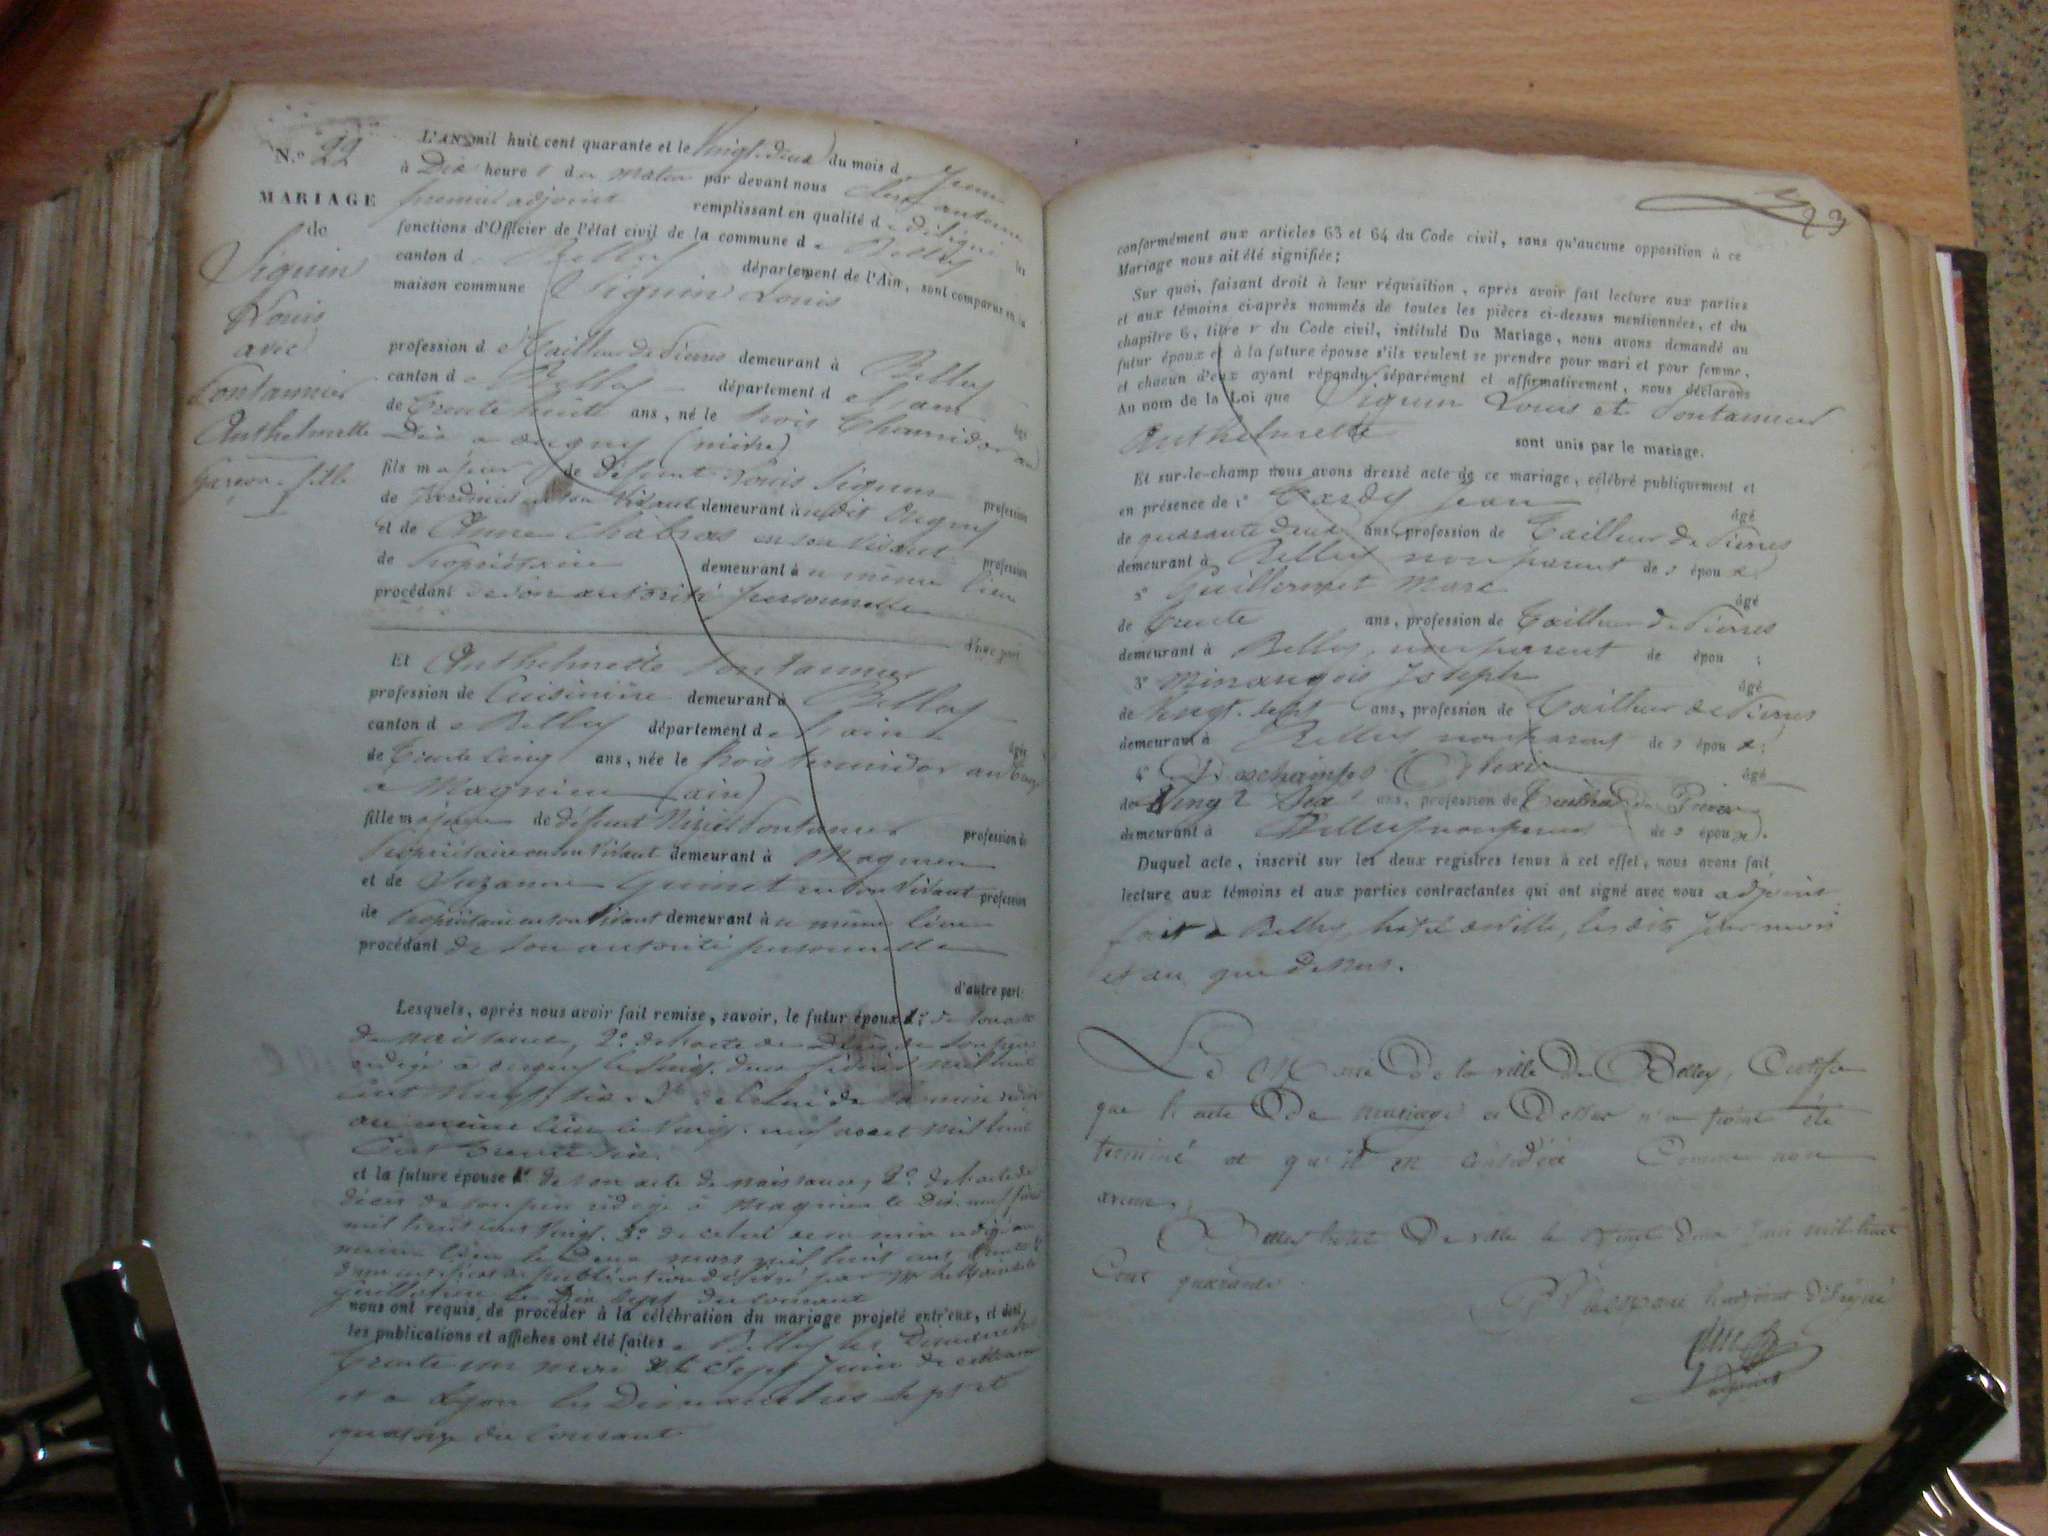 N.o 22
MARIAGE
de
Siguin
Louis
avec
Fontannier
Anthelmette
garçon fille
L'AN mil huit cent quarante et le vingt-deux du mois d juin
à Dix heures du matin par devant nous antoine
premier adjoint remplissant en qualité de délégué les
fonctions d'Officier de l'état civil de la commune de Belley
canton de Belley département de l'Ain, sont comparus en la
maison commune Siguin Louis
profession de Tailleur de Pierres demeurant à Belley
canton de Belley département de l'ain âgé
de Trente huit ans, né le trois Thermidor an
Dix à
fils majeur de défunt Louis Siguin profession
de en son vivant demeurant à
et de Anne en son vivant profession
de Propriétaire demeurant au même lieu
procédant de son autorité personnelle
d'une part
Et Anthelmette Fontannier
profession de Cuisinière demeurant à Belley
canton de Belley département de l'ain âgée
de Trente cinq ans, née le trois thermidor an
à Magnieu (ain)
fille majeure de défunt Fontannier profession de
Propriétaire en son vivant demeurant à Magnieu
et de Suzanne Guinet en son vivant profession
de Propriétaire en son vivant demeurant au même lieu
procédant de son autorité personnelle
d'autre part
Lesquels, après nous avoir fait remise, savoir, le futur époux 1º de son acte
de naissance, 2º de l'acte de décès de son père
rédigé à le vingt deux mil huit
cent vingt six 3º de celui de sa mère rédigé
au même lieu le vingt neuf mil huit
Cent trente six
et la future épouse 1º de son acte de naissance, 2º de l'acte de
décès de son père rédigé à Magnieu le Dix neuf
mil huit cent vingt. 3º de celui de sa mère rédigé au
même lieu le Deux mars mil huit cent
d'un certificat de publication délivré par Mr le Maire de la
guillotière le Dix sept du courant
nous ont requis de procéder à la célébration du mariage projeté entr'eux, et dont
les publications et affiches ont été faites à Belley les Dimanches
trente un mai et sept juin de cette année
et à Lyon les Dimanches sept et
quatorze du courant
23
conformément aux articles 63 et 64 du Code civil, sans qu'aucune opposition à ce
Mariage nous ait été signifiée;
Sur quoi, faisant droit à leur réquisition, après avoir fait lecture aux parties
et aux témoins ci-après nommés de toutes les pièces ci-dessus mentionnées, et du
chapitre 6, titre v du Code civil, intitulé Du Mariage, nous avons demandé au
futur époux et à la future épouse s'ils veulent se prendre pour mari et pour femme,
et chacun d'eux ayant répondu séparément et affirmativement, nous déclarons
Au nom de la Loi que Siguin Louis et Fontannier
Anthelmette sont unis par le mariage.
Et sur-le-champ nous avons dressé acte de ce mariage, célébré publiquement et
en présence de 1º Tardy Jean âgé
de quarante deux ans, profession de Tailleur de Pierres
demeurant à Belley non parent des époux
2º Guillermet Marc âgé
de Trente ans, profession de Tailleur de Pierres
demeurant à Belley, non parent de épou ;
3º Joseph âgé
de vingt-sept ans, profession de Tailleur de Pierres
demeurant à Belley non parent des époux;
4º Deschamps âgé
de vingt Six ans, profession de Tailleur de Pierres
demeurant à Belley non parent des époux.
Duquel acte, inscrit sur les deux registres tenus à cet effet, nous avons fait
lecture aux témoins et aux parties contractantes qui ont signé avec nous adjoint
fait à Belley, hôtel de ville, les dits jour mois
et an que dessus.
Le Maire De la ville De Belley, Certifie
que l'acte De mariage ci Dessus n'a point été
terminé et qu'il est considéré Comme non
avenu,
Belley hôtel De ville le vingt Deux juin mil huit
Cent quarante.
l'adjoint Délégué
adjoint